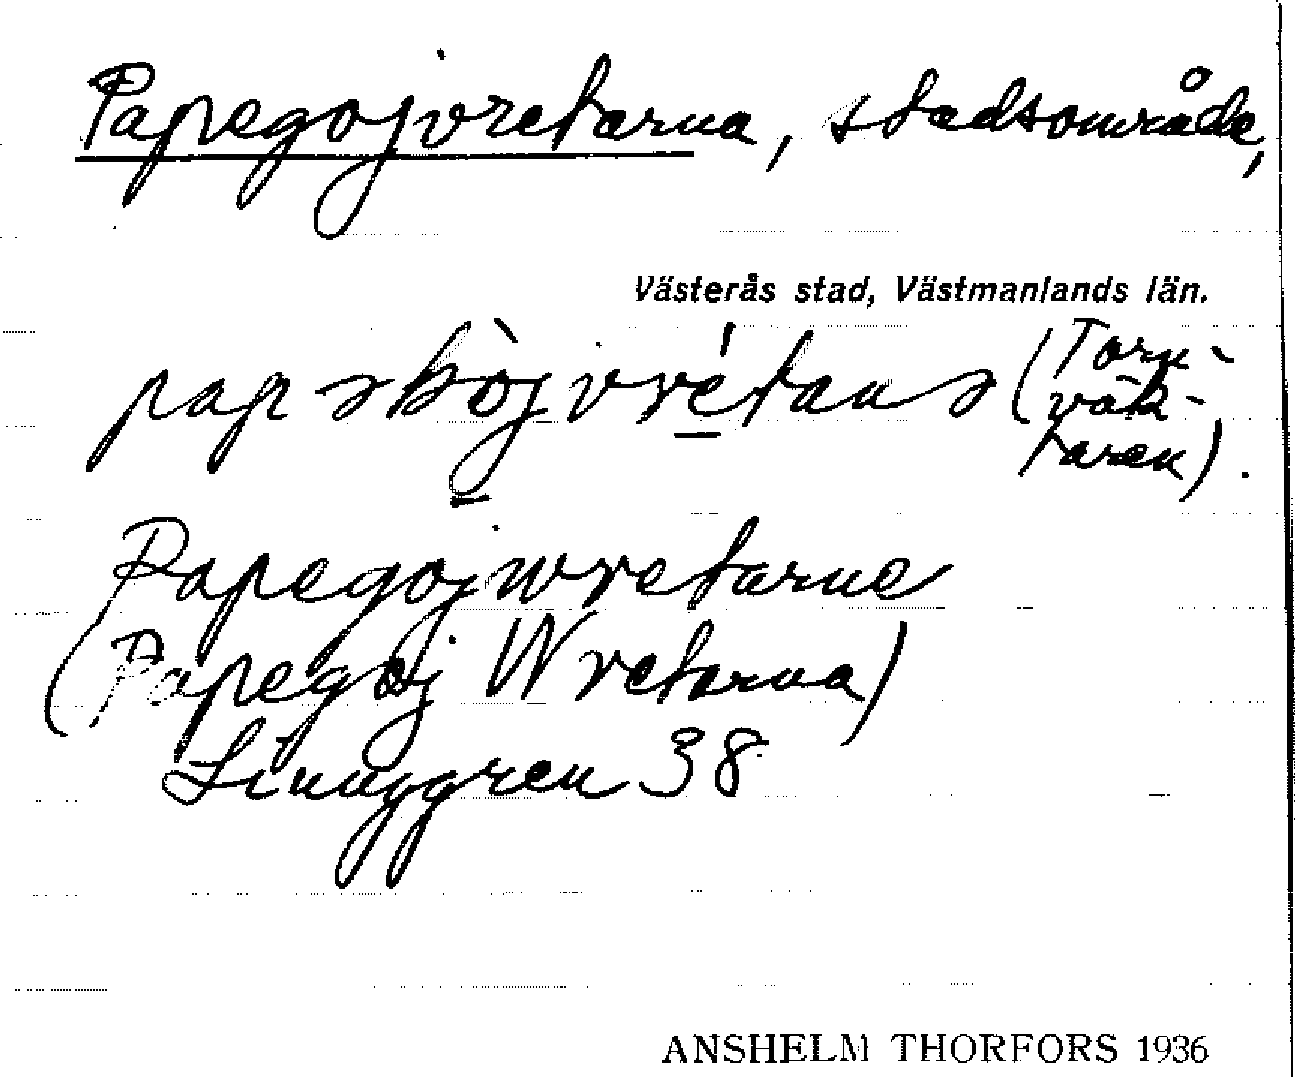 Papegojvretarna, stadsområde,
Västerås stad, Västmanlands län.
(Torn-
väk-
taren).
Papegojwretarne
(Papegoj Wretarna)
38
ANSHELM THORFORS 1936